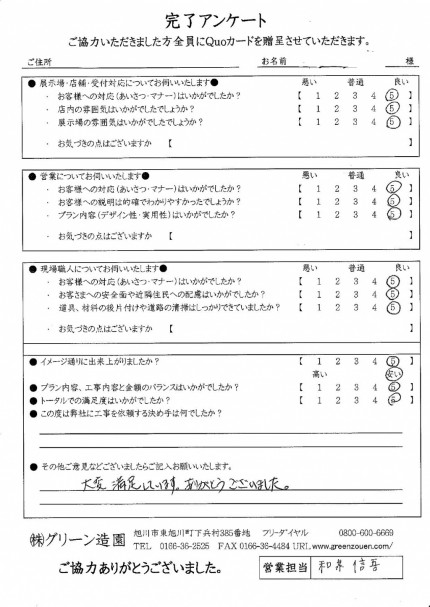 完了アンケート
ご協力いただきました方全員にQuoカードを贈呈させていただきます。
ご住所 お名前 様
● 展示場・店舗・受付対応についてお伺いいたします● 悪い 普通 良い
・ お客様への対応(あいさつ・マナー)はいかがでしたか? 【 1 2 3 4 5 】
・ 店内の雰囲気はいかがでしたでしょうか? 【 1 2 3 4 5 】
・ 展示場の雰囲気はいかがでしたか? 【 1 2 3 4 5 】
・ お気づきの点はございますか 【 】
● 営業についてお伺いいたします● 悪い 普通 良い
・ お客様への対応(あいさつ・マナー)はいかがでしたか? 【 1 2 3 4 5 】
・ お客様への説明は的確でわかりやすかったでしょうか? 【 1 2 3 4 5 】
・ プラン内容(デザイン性・実用性)はいかがでしたか? 【 1 2 3 4 5 】
・ お気づきの点はございますか 【 】
● 現場職人についてお伺いいたします● 悪い 普通 良い
・ お客様への対応(あいさつ・マナー)はいかがでしたか? 【 1 2 3 4 5 】
・ お客さまへの安全面や近隣住民への配慮はいかがでしたか? 【 1 2 3 4 5 】
・ 道具、材料の後片付けや道路の清掃はしっかりできていましたか? 【 1 2 3 4 5 】
・ お気づきの点はございますか 【 】
● イメージ通りに出来上がりましたか? 【 1 2 3 4 5 】
高い 安い
● プラン内容、工事内容と金額のバランスはいかがでしたか? 【 1 2 3 4 5 】
● トータルでの満足度はいかがでしたか? 【 1 2 3 4 5 】
● この度は弊社に工事を依頼する決め手は何でしたか?
● その他ご意見などございましたらご記入お願いいたします。
大変満足しています。ありがとうございました。
㈱グリーン造園 旭川市東旭川町下兵村385番地 フリーダイヤル 0800-600-6669
TEL 0166-36-2525 FAX 0166-36-4484 URL www.greenzouen.com/
ご協力ありがとうございました。 営業担当 和泉 信吾